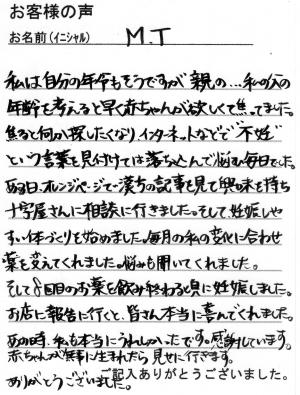 お客様の声
お名前(イニシャル) M.T
私は自分の年令もそうですが親の…私の父の
年齢を考えると早く赤ちゃんが欲しくて焦ってました。
焦ると何か探したくなりインターネットなどで“不妊”
という言葉を見付けては落ち込んで悩む毎日でした。
ある日、オレンジページで漢方の記事を見て興味を持ち
十字屋さんに相談に行きました。そして妊娠しや
すい体づくりを始めました。毎月の私の変化に合わせ
薬を変えてくれました。悩みも聞いてくれました。
そして8回目のお薬を飲み終わる頃に妊娠しました。
お店に報告に行くと、皆さん本当に喜んでくれました。
あの時、私も本当にうれしかったです。感謝しています。
赤ちゃんが無事に生まれたら見せに行きます。
ありがとうございました。
ご記入ありがとうございました。